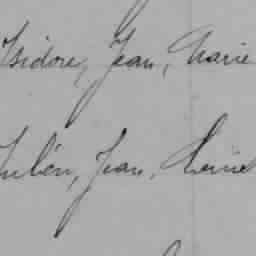 Isidore, Jean, Marie
Julien, Jean, Marie